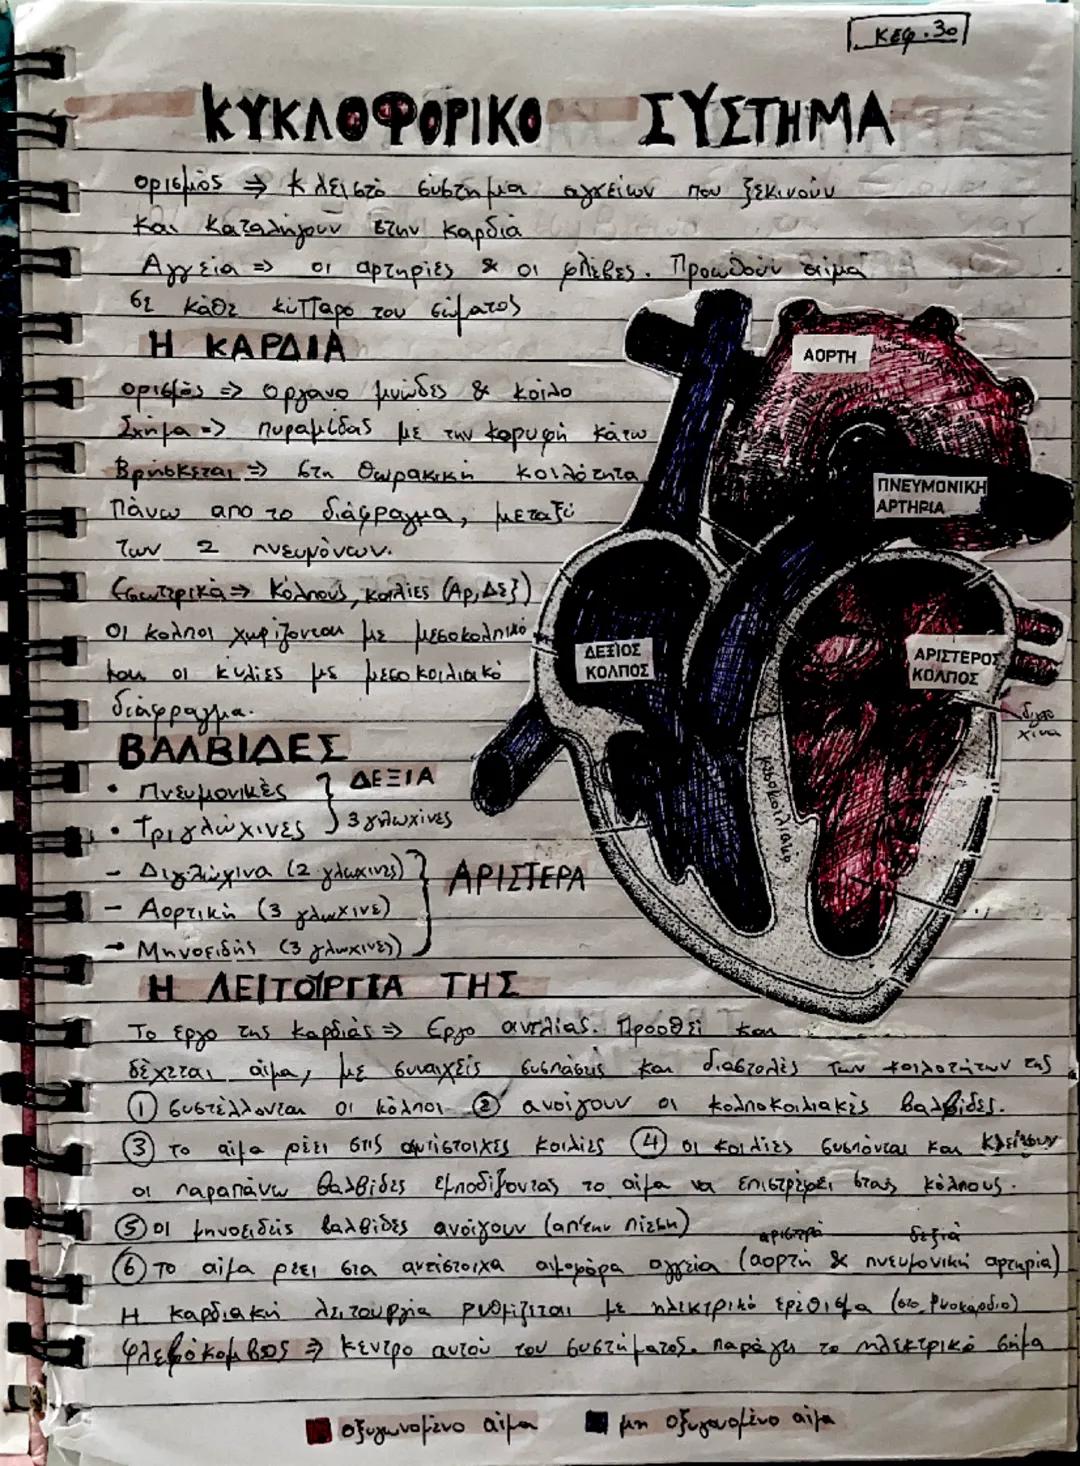 κεφ. 3ο
ΚΥΚΛΟΦΟΡΙΚΟ ΣΥΣΤΗΜΑ
ορισμός => κλειστό σύστημα αγγείων που ξεκινούν
και καταλήγουν στην καρδιά
Αγγεία => οι αρτηρίες & οι φλέβες. Προωθούν αίμα
σε κάθε κύτταρο του σώματος
Η ΚΑΡΔΙΑ
ορισμός => όργανο μυώδες & κοίλο
Σχήμα => πυραμίδας με την κορυφή κάτω
Βρίσκεται => στη θωρακική κοιλότητα
πάνω απο το διάφραγμα, μεταξύ
των 2 πνευμόνων.
Εσωτερικά => Κόλπους, κοιλίες (Αρ, Δεξ)
οι κολποι χωρίζονται με μεσοκολπικό
και οι κιλίες με μεσοκοιλιακό
διάφραγμα.
ΒΑΛΒΙΔΕΣ
• Πνευμονικές
• Τριγλώχινες
ΔΕΞΙΑ
3 γλωχίνες
- Διγλώχινα (2 γλωχινες)
- Αορτική (3 γλωχινε)
→ Μηνοειδής (3 γλωχινες)
ΑΡΙΣΤΕΡΑ
ΑΟΡΤΗ
ΠΝΕΥΜΟΝΙΚΗ
ΑΡΤΗΡΙΑ
ΔΕΞΙΟΣ
ΚΟΛΠΟΣ
ΑΡΙΣΤΕΡΟΣ
ΚΟΛΠΟΣ
διγλω
χινα
μεσοκοιλιακό
Η ΛΕΙΤΟΥΡΓΙΑ ΤΗΣ
Το έργο της καρδιάς => Εργο αντλίας. Προσθεί και
δέχεται αίμα, με συναιχείς συσπάσεις και διαστολές των κοιλοτήτων της
① συστέλλονται οι κόλποι ② ανοίγουν οι κολποκοιλιακές βαλβίδες.
③ το αίμα ρέει στις αντίστοιχες κοιλίες ④ οι κοιλίες συσπόνται και κλείνουν
οι παραπάνω βαλβίδες εμποδίζοντας το αίμα να επιστρέψει στους κόλπους.
⑤ οι μηνοειδείς βαλβίδες ανοίγουν (απ'την πίεση)
αριστερά δεξιά
⑥ το αίμα ρέει στα αντίστοιχα αιμοφόρα αγγεία (αορτή & πνευμονική αρτηρία)
Η καρδιακή λειτουργία ρυθμίζεται με ηλεκτρικό ερέθισμα (στο μυοκάρδιο)
φλεβόκομβος => κέντρο αυτού του συστήματος. παράγει το ηλεκτρικό σήμα
οξυγωνομένο αίμα
μη οξυγονομένο αίμα